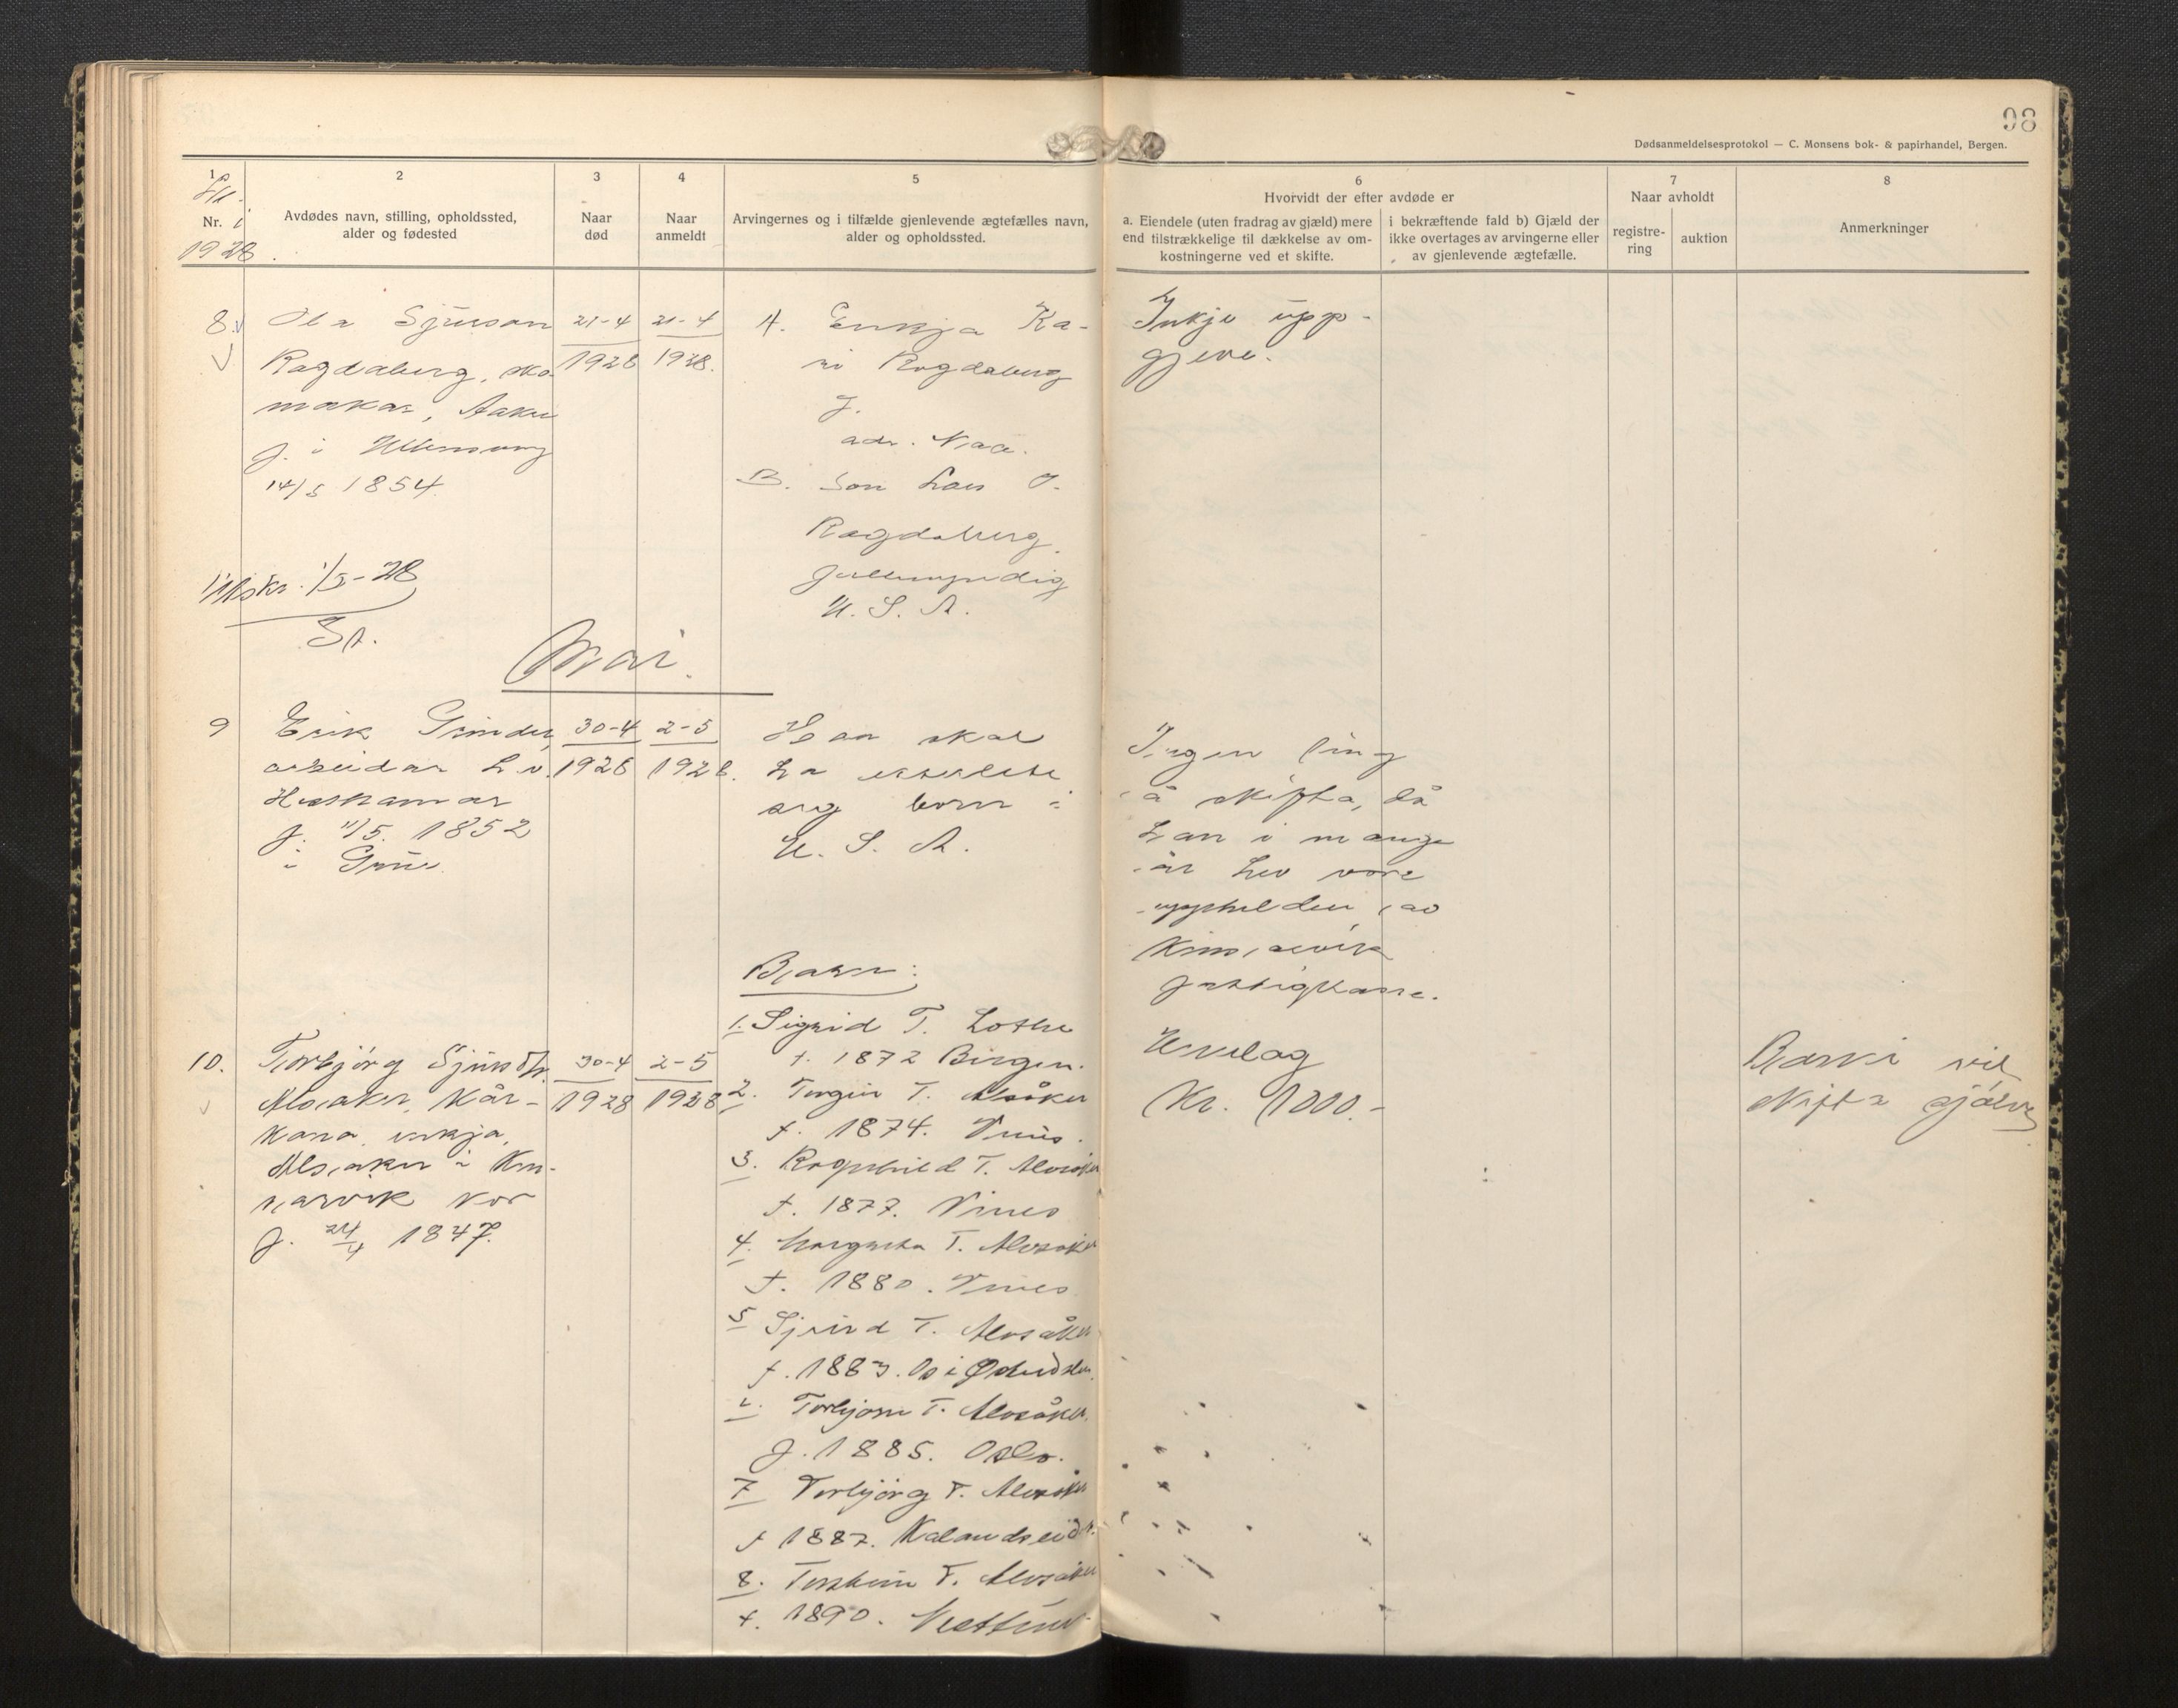 98
Dødsanmeldelsesprotokol — C. Monsens bok- & papirhandel, Bergen.
1
Nr. i
1928.
2
Avdødes navn, stilling, opholdssted,
alder og fødested
3
Naar
død
4
Naar
anmeldt
5
Arvingernes og i tilfælde gjenlevende ægtefælles navn,
alder og opholdssted.
6
Hvorvidt der efter avdøde er
a. Eiendele (uten fradrag av gjæld) mere
end tilstrækkelige til dækkelse av om-
kostningerne ved et skifte.
i bekræftende fald b) Gjæld der
ikke overtages av arvingerne eller
av gjenlevende ægtefælle.
7
Naar avholdt
registre-
ring
auktion
8
Anmerkninger
8.
Ola Sjurson
Ragdaberg, sko-
makar, Aaker
f. i Ullensvang
14/5 1854
21-4
1928
21-4
1928.
A. Enkja Ka-
ri Rogdaberg
f.
adr. Naa.
B. Son Lars O.
Ragdaberg.
fullmyndig
U. S. A.
Inkje upp-
gjeve.
Utskr. 1/5-28
Mai.
9
Erik Grinder,
arbeidar h. v.
Hushamar
f. 11/5. 1852
i Grue.
30-4
1928
2-5
1928.
Han skal
ha etterlete
seg born i
U. S. A.
Ingen ting
å skifta, då
han i mange
år hev vore
uppehelden av
Kinsarvik
fattigkasse.
10.
Torbjørg Sjursdtr.
Alsaker, Kår-
kona, enkja,
Alsaker i Kin-
sarvik
f. 24/4 1847.
30-4
1928
2-5
1928
Born:
1. Sigrid T. Lothe
f. 1872 Bergen.
2. Torgeir T. Alsåker
f. 1874.
3. Ragnhild T. Alsåker
f. 1877.
4. Margreta T. Alsåker
f. 1880.
5 Sjurd T. Alsåker
f. 1883. Os i Østerdalen.
Torbjørn T. Alsåker.
f. 1885. Oslo.
7 Torbjørg T. Alsåker
f 1887. Kalandseid
8. T. Alsåker
f. 1890. Nesttun
Kr. 1000.-
Borni vil
skifta sjølve